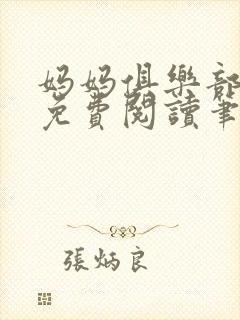 媽媽俱樂部
免費閱讀筆
張炳良